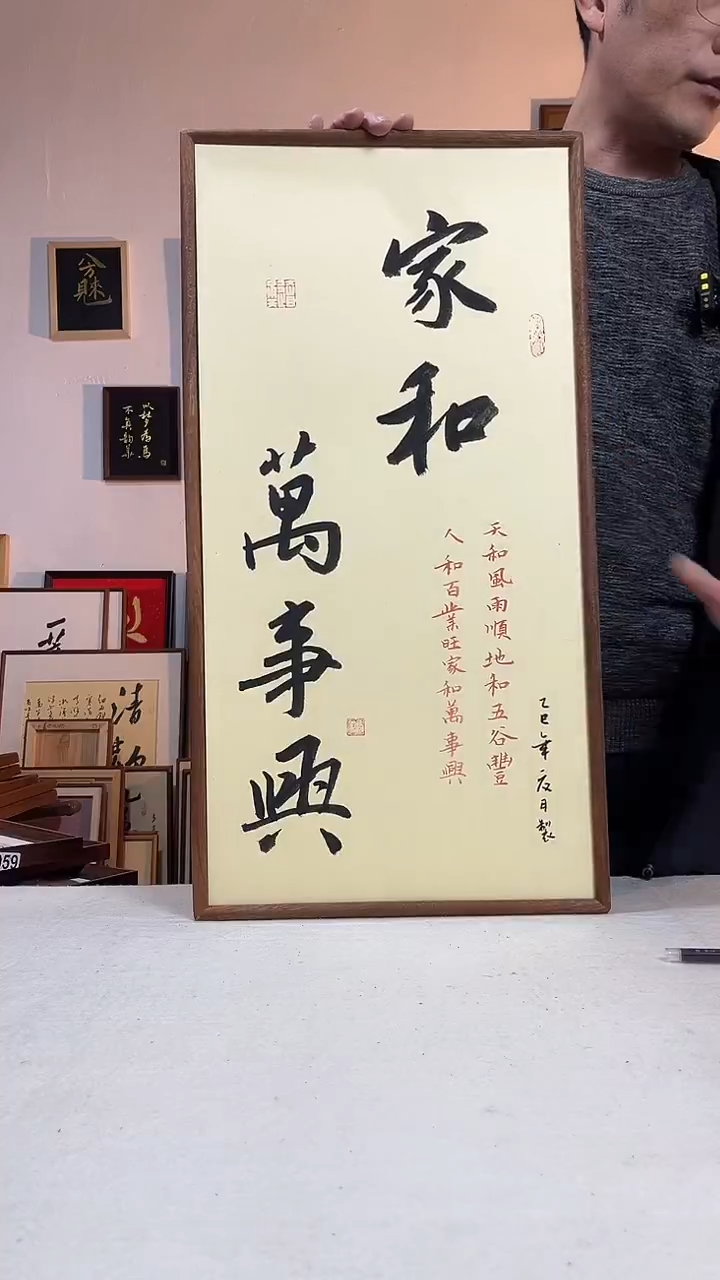 家和
萬事興
天和風雨順地和五谷豐
人和百業旺家和萬事興
乙巳年夏月製
以夢為馬
不負韶華
清
59